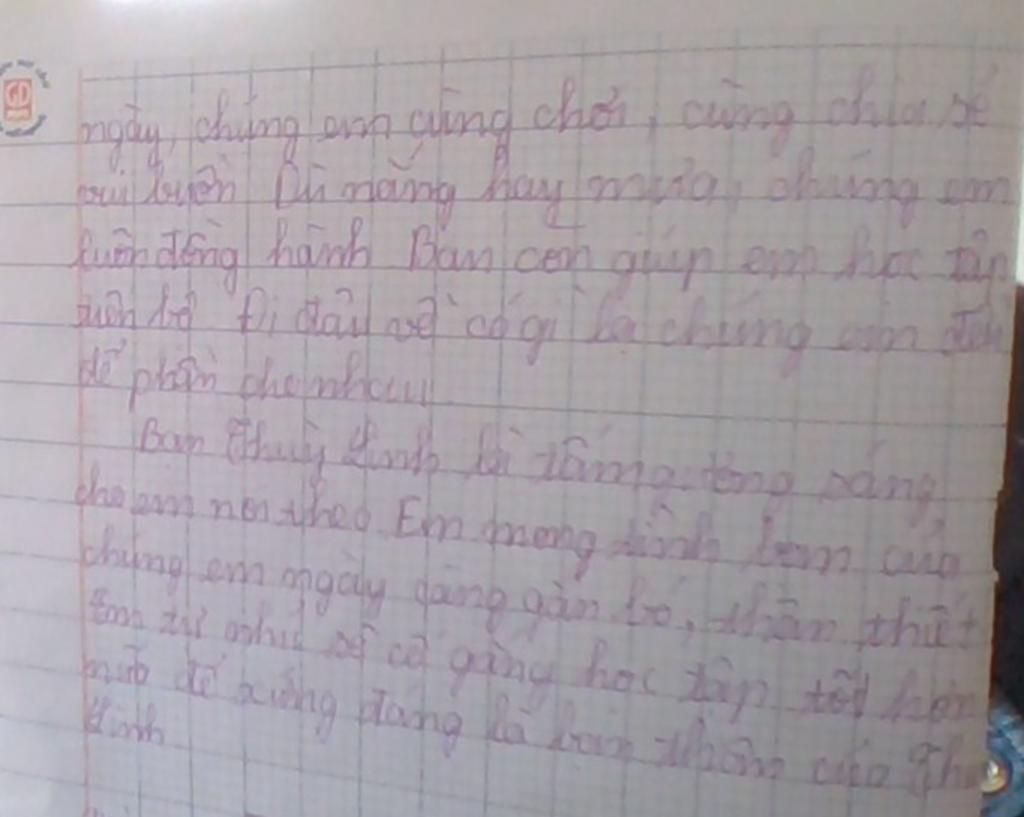 GD
ngày, chúng em cùng chơi, cùng chia sẻ
vui buồn Dù nắng hay mưa, chúng em
luôn đồng hành Bạn còn giúp em học tập
tiến bộ Đi đâu về có gì là chúng em
để phần cho nhau
Bạn Thuỳ Linh là tấm gương sáng
cho em noi theo Em mong tình bạn của
chúng em ngày càng gắn bó, thân thiết
Em tự nhủ sẽ cố gắng học tập tốt hơn
nữa để xứng đáng là bạn thân của
Linh